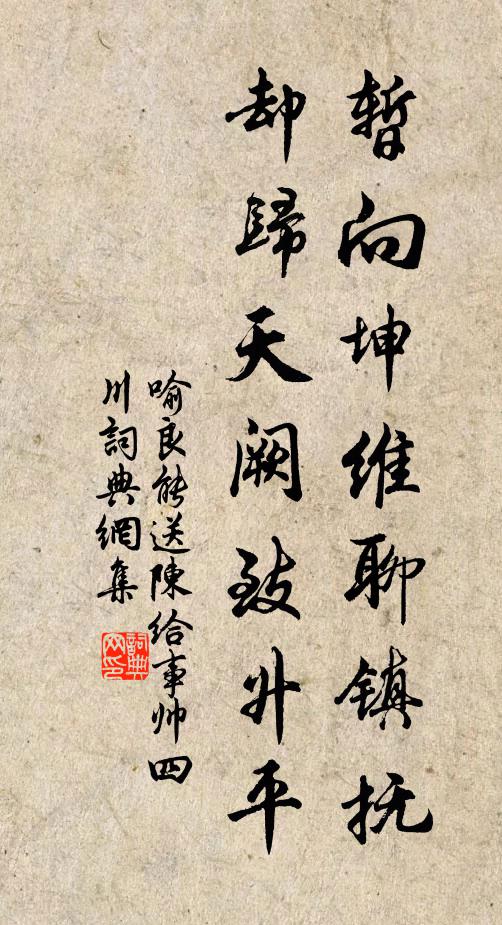 暂向坤维聊镇抚
却歸天阙致升平
喻良能送陳给事帅四
川詞典網集
詞典网印